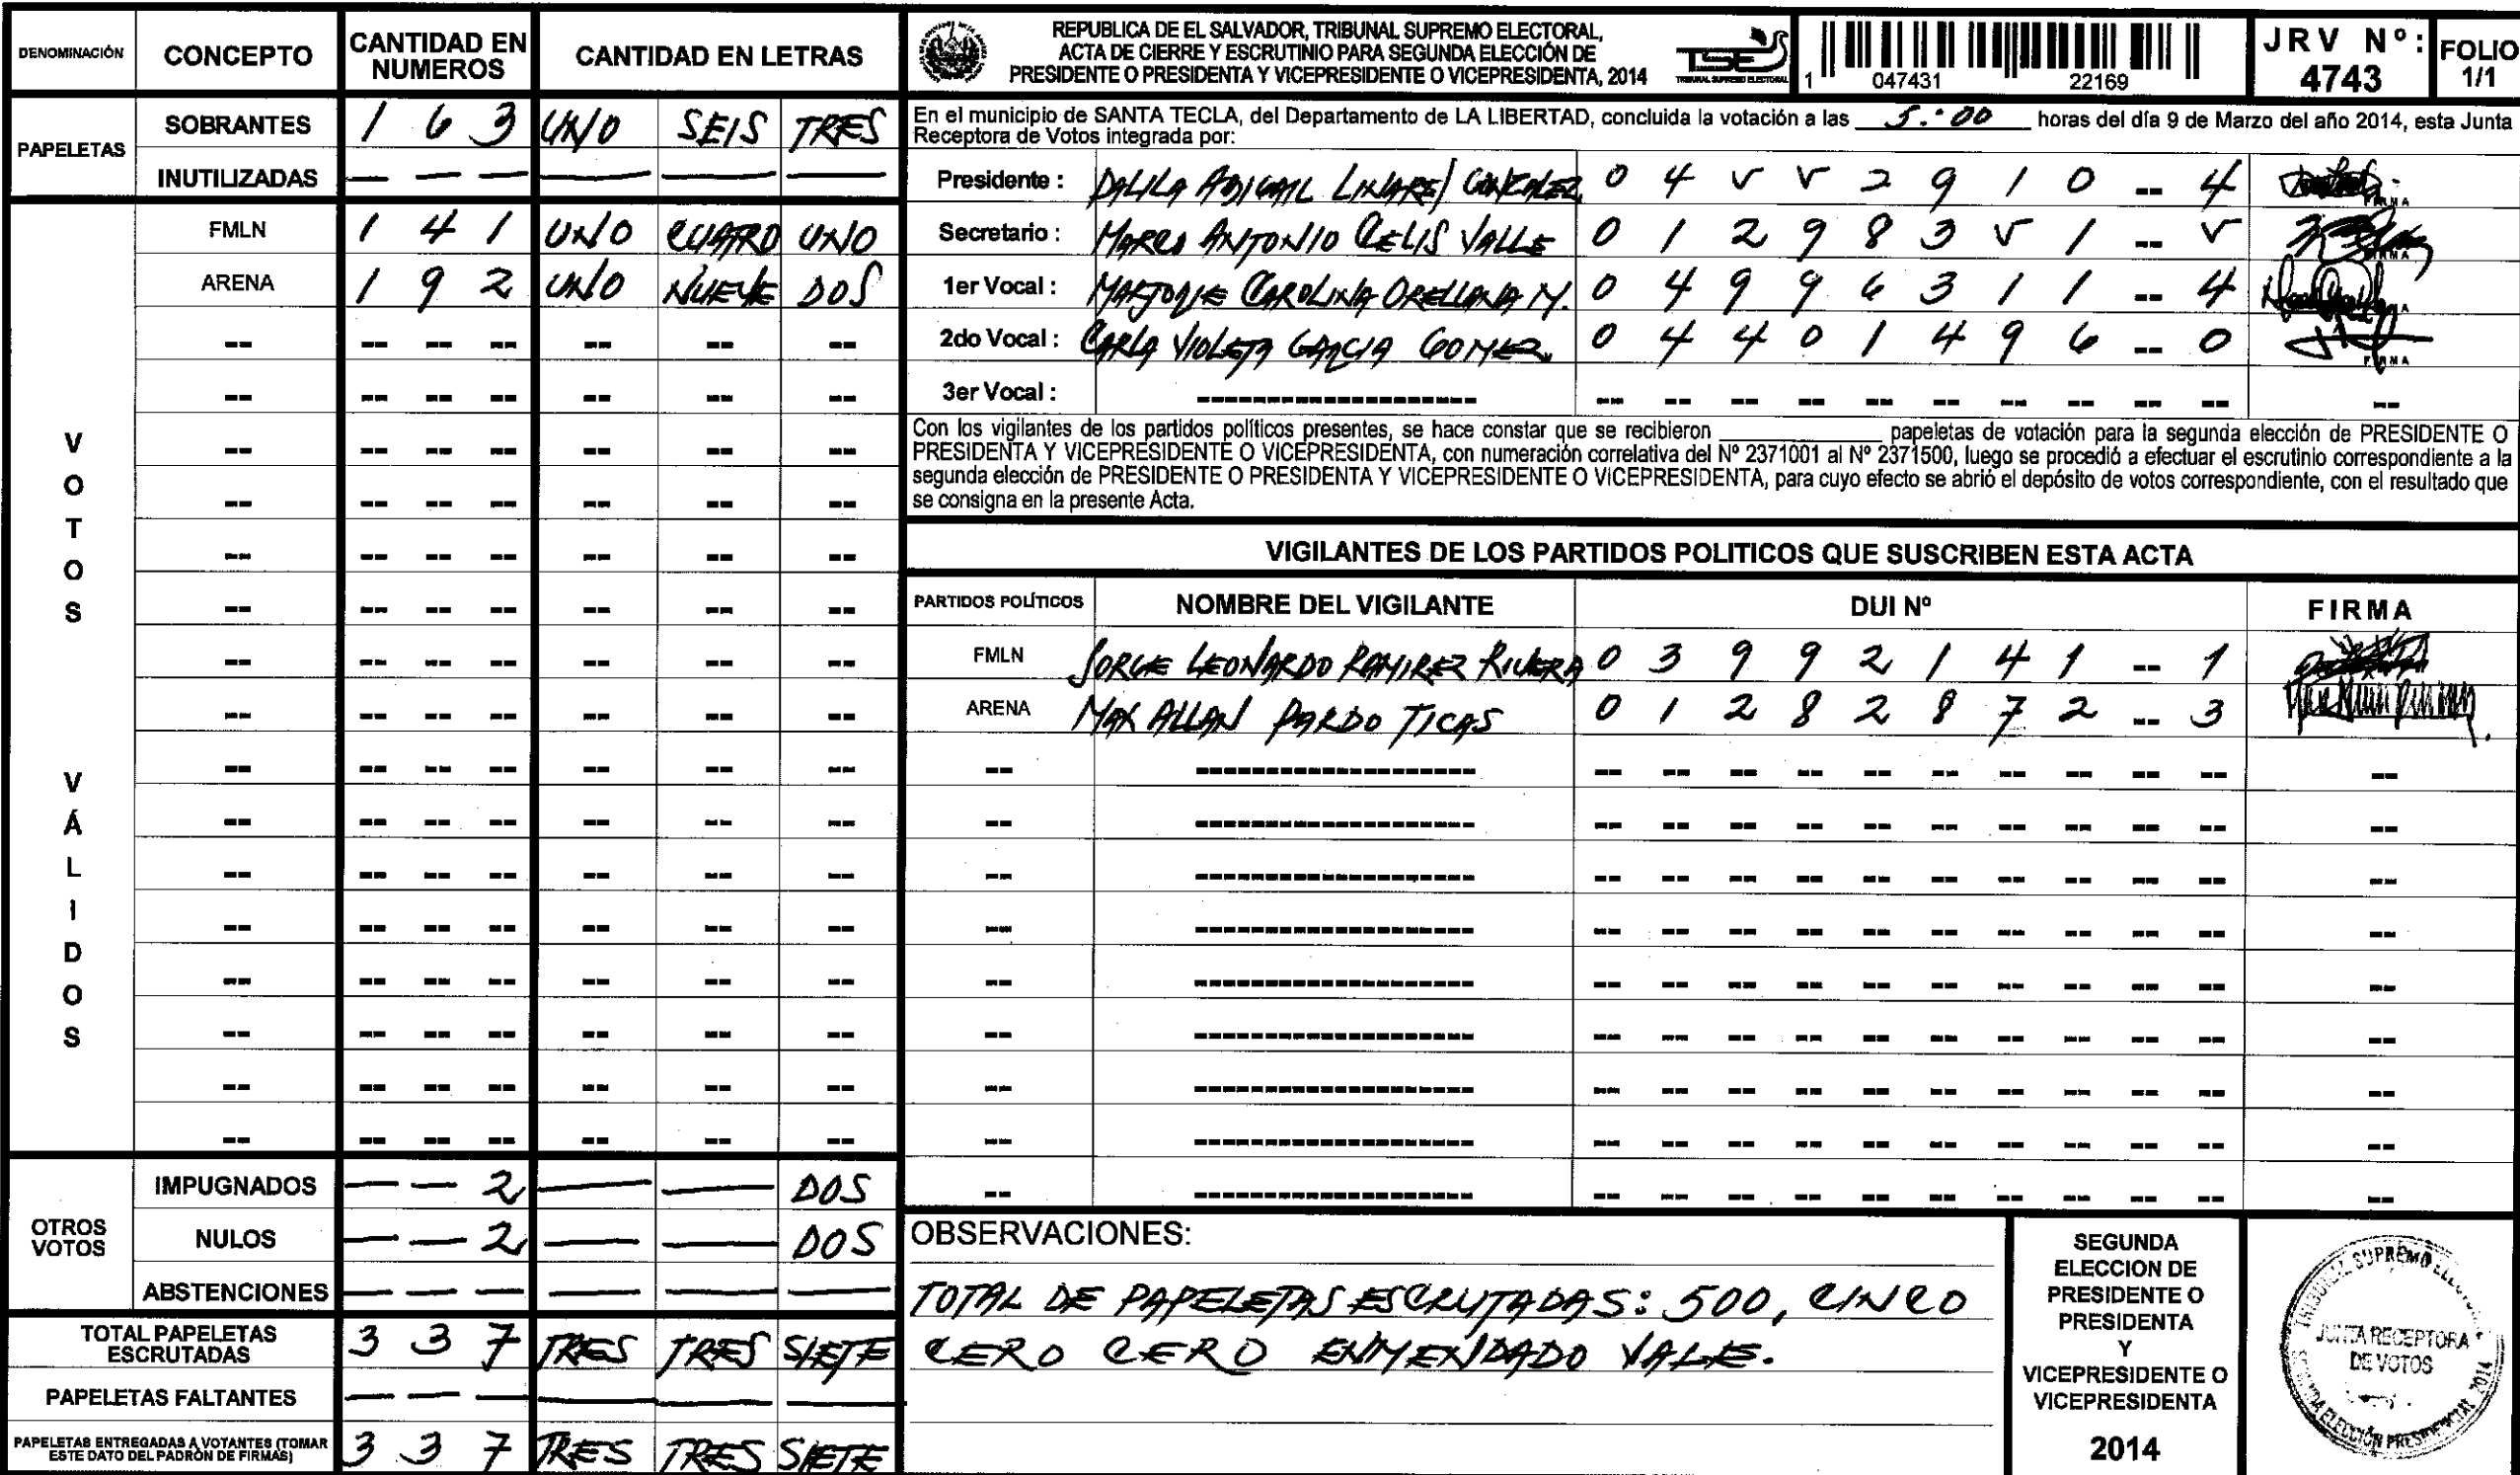 DENOMINACIÓN CONCEPTO CANTIDAD EN NUMEROS CANTIDAD EN LETRAS
PAPELETAS
SOBRANTES 1 6 3 UNO SEIS TRES
INUTILIZADAS — — — — — —
VOTOS VÁLIDOS
FMLN 1 4 1 UNO CUATRO UNO
ARENA 1 9 2 UNO NUEVE DOS
OTROS VOTOS
IMPUGNADOS — — 2 — — DOS
NULOS — — 2 — — DOS
ABSTENCIONES — — — — — —
TOTAL PAPELETAS ESCRUTADAS 3 3 7 TRES TRES SIETE
PAPELETAS FALTANTES — — — — — —
PAPELETAS ENTREGADAS A VOTANTES (TOMAR ESTE DATO DEL PADRÓN DE FIRMAS) 3 3 7 TRES TRES SIETE
REPUBLICA DE EL SALVADOR, TRIBUNAL SUPREMO ELECTORAL,
ACTA DE CIERRE Y ESCRUTINIO PARA SEGUNDA ELECCIÓN DE
PRESIDENTE O PRESIDENTA Y VICEPRESIDENTE O VICEPRESIDENTA, 2014
TSE
TRIBUNAL SUPREMO ELECTORAL
1 047431 22169
JRV Nº: 4743
FOLIO 1/1
En el municipio de SANTA TECLA, del Departamento de LA LIBERTAD, concluida la votación a las 5:00 horas del día 9 de Marzo del año 2014, esta Junta
Receptora de Votos integrada por:
Presidente : DALILA ABIGAIL LINARES GONZALEZ 0 4 v v 2 9 1 0 -- 4 FIRMA
Secretario : MARCO ANTONIO CELIS VALLE 0 1 2 9 8 3 v 1 -- v FIRMA
1er Vocal : MARJORIE CAROLINA ORELLANA M. 0 4 9 9 6 3 1 1 -- 4
2do Vocal : CARLA VIOLETA GARCIA GOMEZ 0 4 4 0 1 4 9 6 -- 0 FIRMA
3er Vocal :
Con los vigilantes de los partidos políticos presentes, se hace constar que se recibieron ____________ papeletas de votación para la segunda elección de PRESIDENTE O
PRESIDENTA Y VICEPRESIDENTE O VICEPRESIDENTA, con numeración correlativa del Nº 2371001 al Nº 2371500, luego se procedió a efectuar el escrutinio correspondiente a la
segunda elección de PRESIDENTE O PRESIDENTA Y VICEPRESIDENTE O VICEPRESIDENTA, para cuyo efecto se abrió el depósito de votos correspondiente, con el resultado que
se consigna en la presente Acta.
VIGILANTES DE LOS PARTIDOS POLITICOS QUE SUSCRIBEN ESTA ACTA
PARTIDOS POLÍTICOS NOMBRE DEL VIGILANTE DUI Nº FIRMA
FMLN JORGE LEONARDO RAMIREZ RIVERA 0 3 9 9 2 1 4 1 -- 1
ARENA MAX ALLAN PARDO TICAS 0 1 2 8 2 8 7 2 -- 3
OBSERVACIONES:
TOTAL DE PAPELETAS ESCRUTADAS: 500, CINCO
CERO CERO ENMENDADO VALE.
SEGUNDA
ELECCION DE
PRESIDENTE O
PRESIDENTA
Y
VICEPRESIDENTE O
VICEPRESIDENTA
2014
TRIBUNAL SUPREMO
JUNTA RECEPTORA
DE VOTOS
SEGUNDA ELECCIÓN PRESIDENCIAL 2014